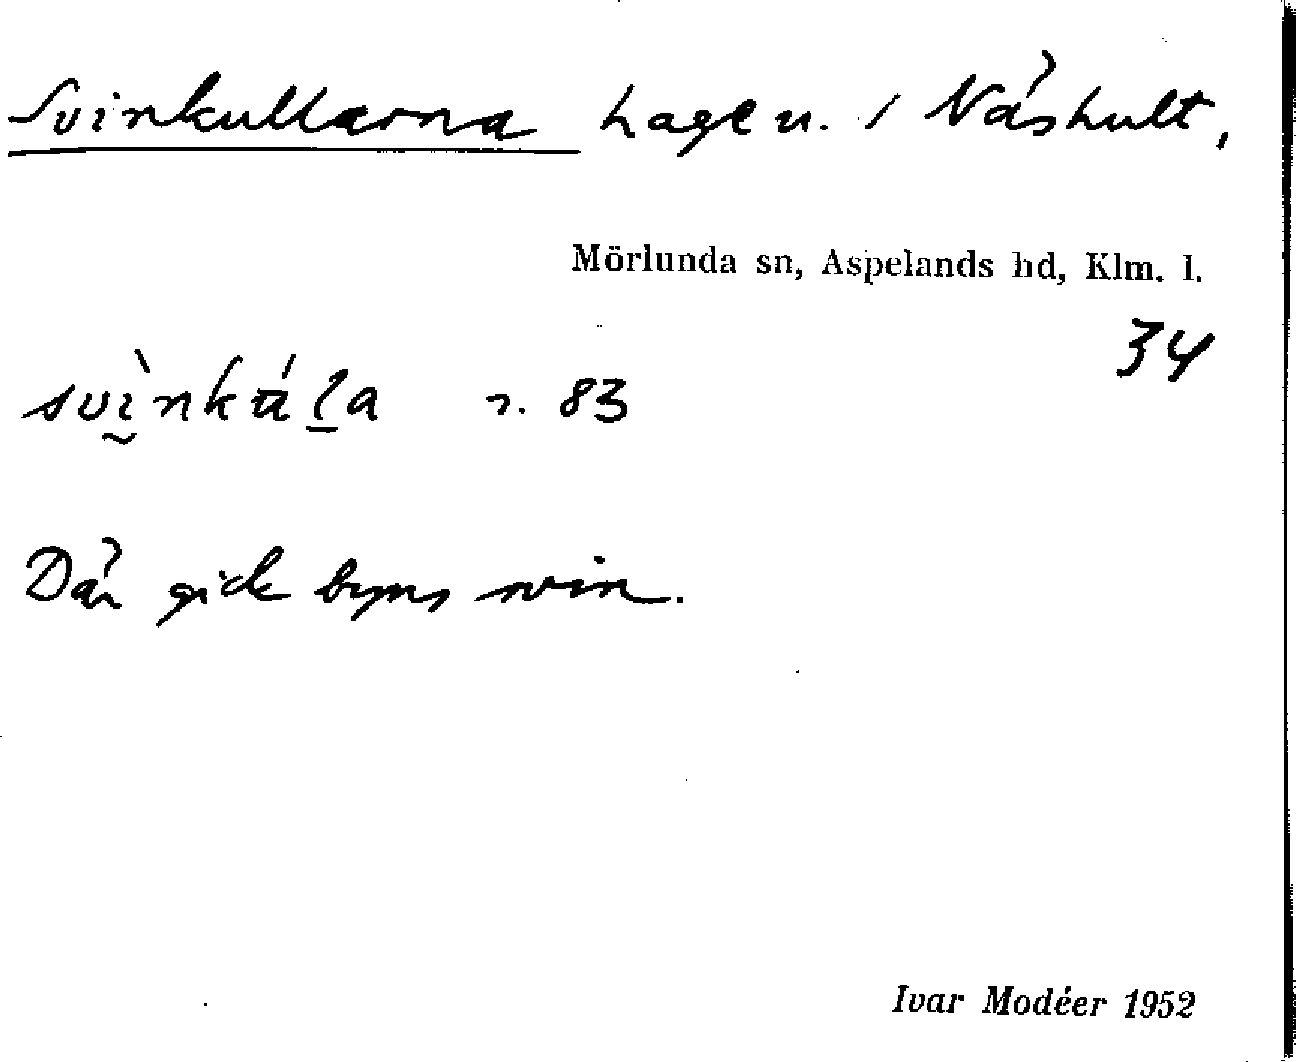 Svinkullarna hage u. / Näshult,
Mörlunda sn, Aspelands hd, Klm. l.
34
svḭ̀nkŭ́l̠a r. 83
Där gick byns svin.
Ivar Modéer 1952